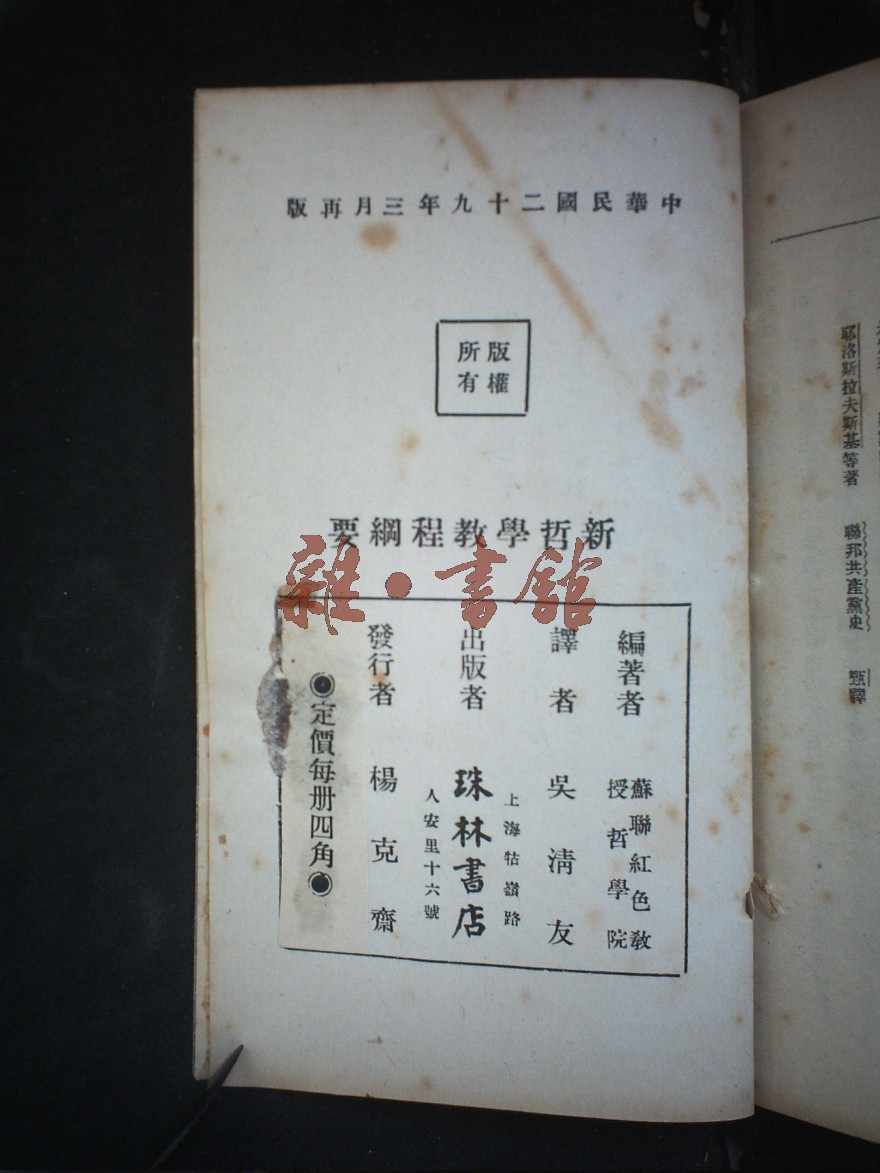 中華民國二十九年三月再版
版權
所有
新哲學教程綱要
雜·書館
編著者 蘇聯紅色教授哲學院
譯者 吳清友
出版者 上海牯嶺路
珠林書店
人安里十六號
發行者 楊克齋
定價每册四角
耶洛斯拉夫斯基等著 聯邦共產黨史